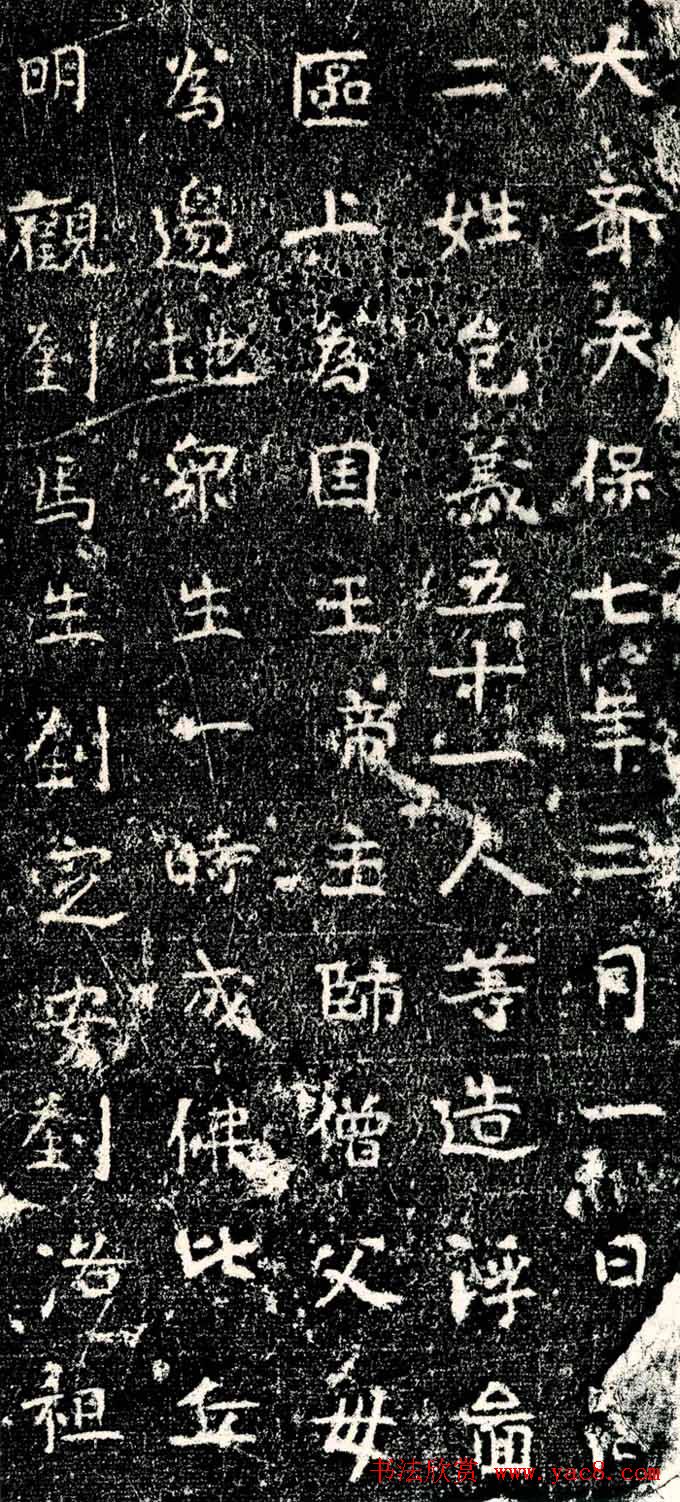 大齊天保七年三月一日
二姓邑義五十一人等造浮啚
區上為国王帝主師僧父母
為邊地眾生一時成佛比丘
明觀劉焉生劉定安劉浩祖
书法欣赏 www.yac8.com